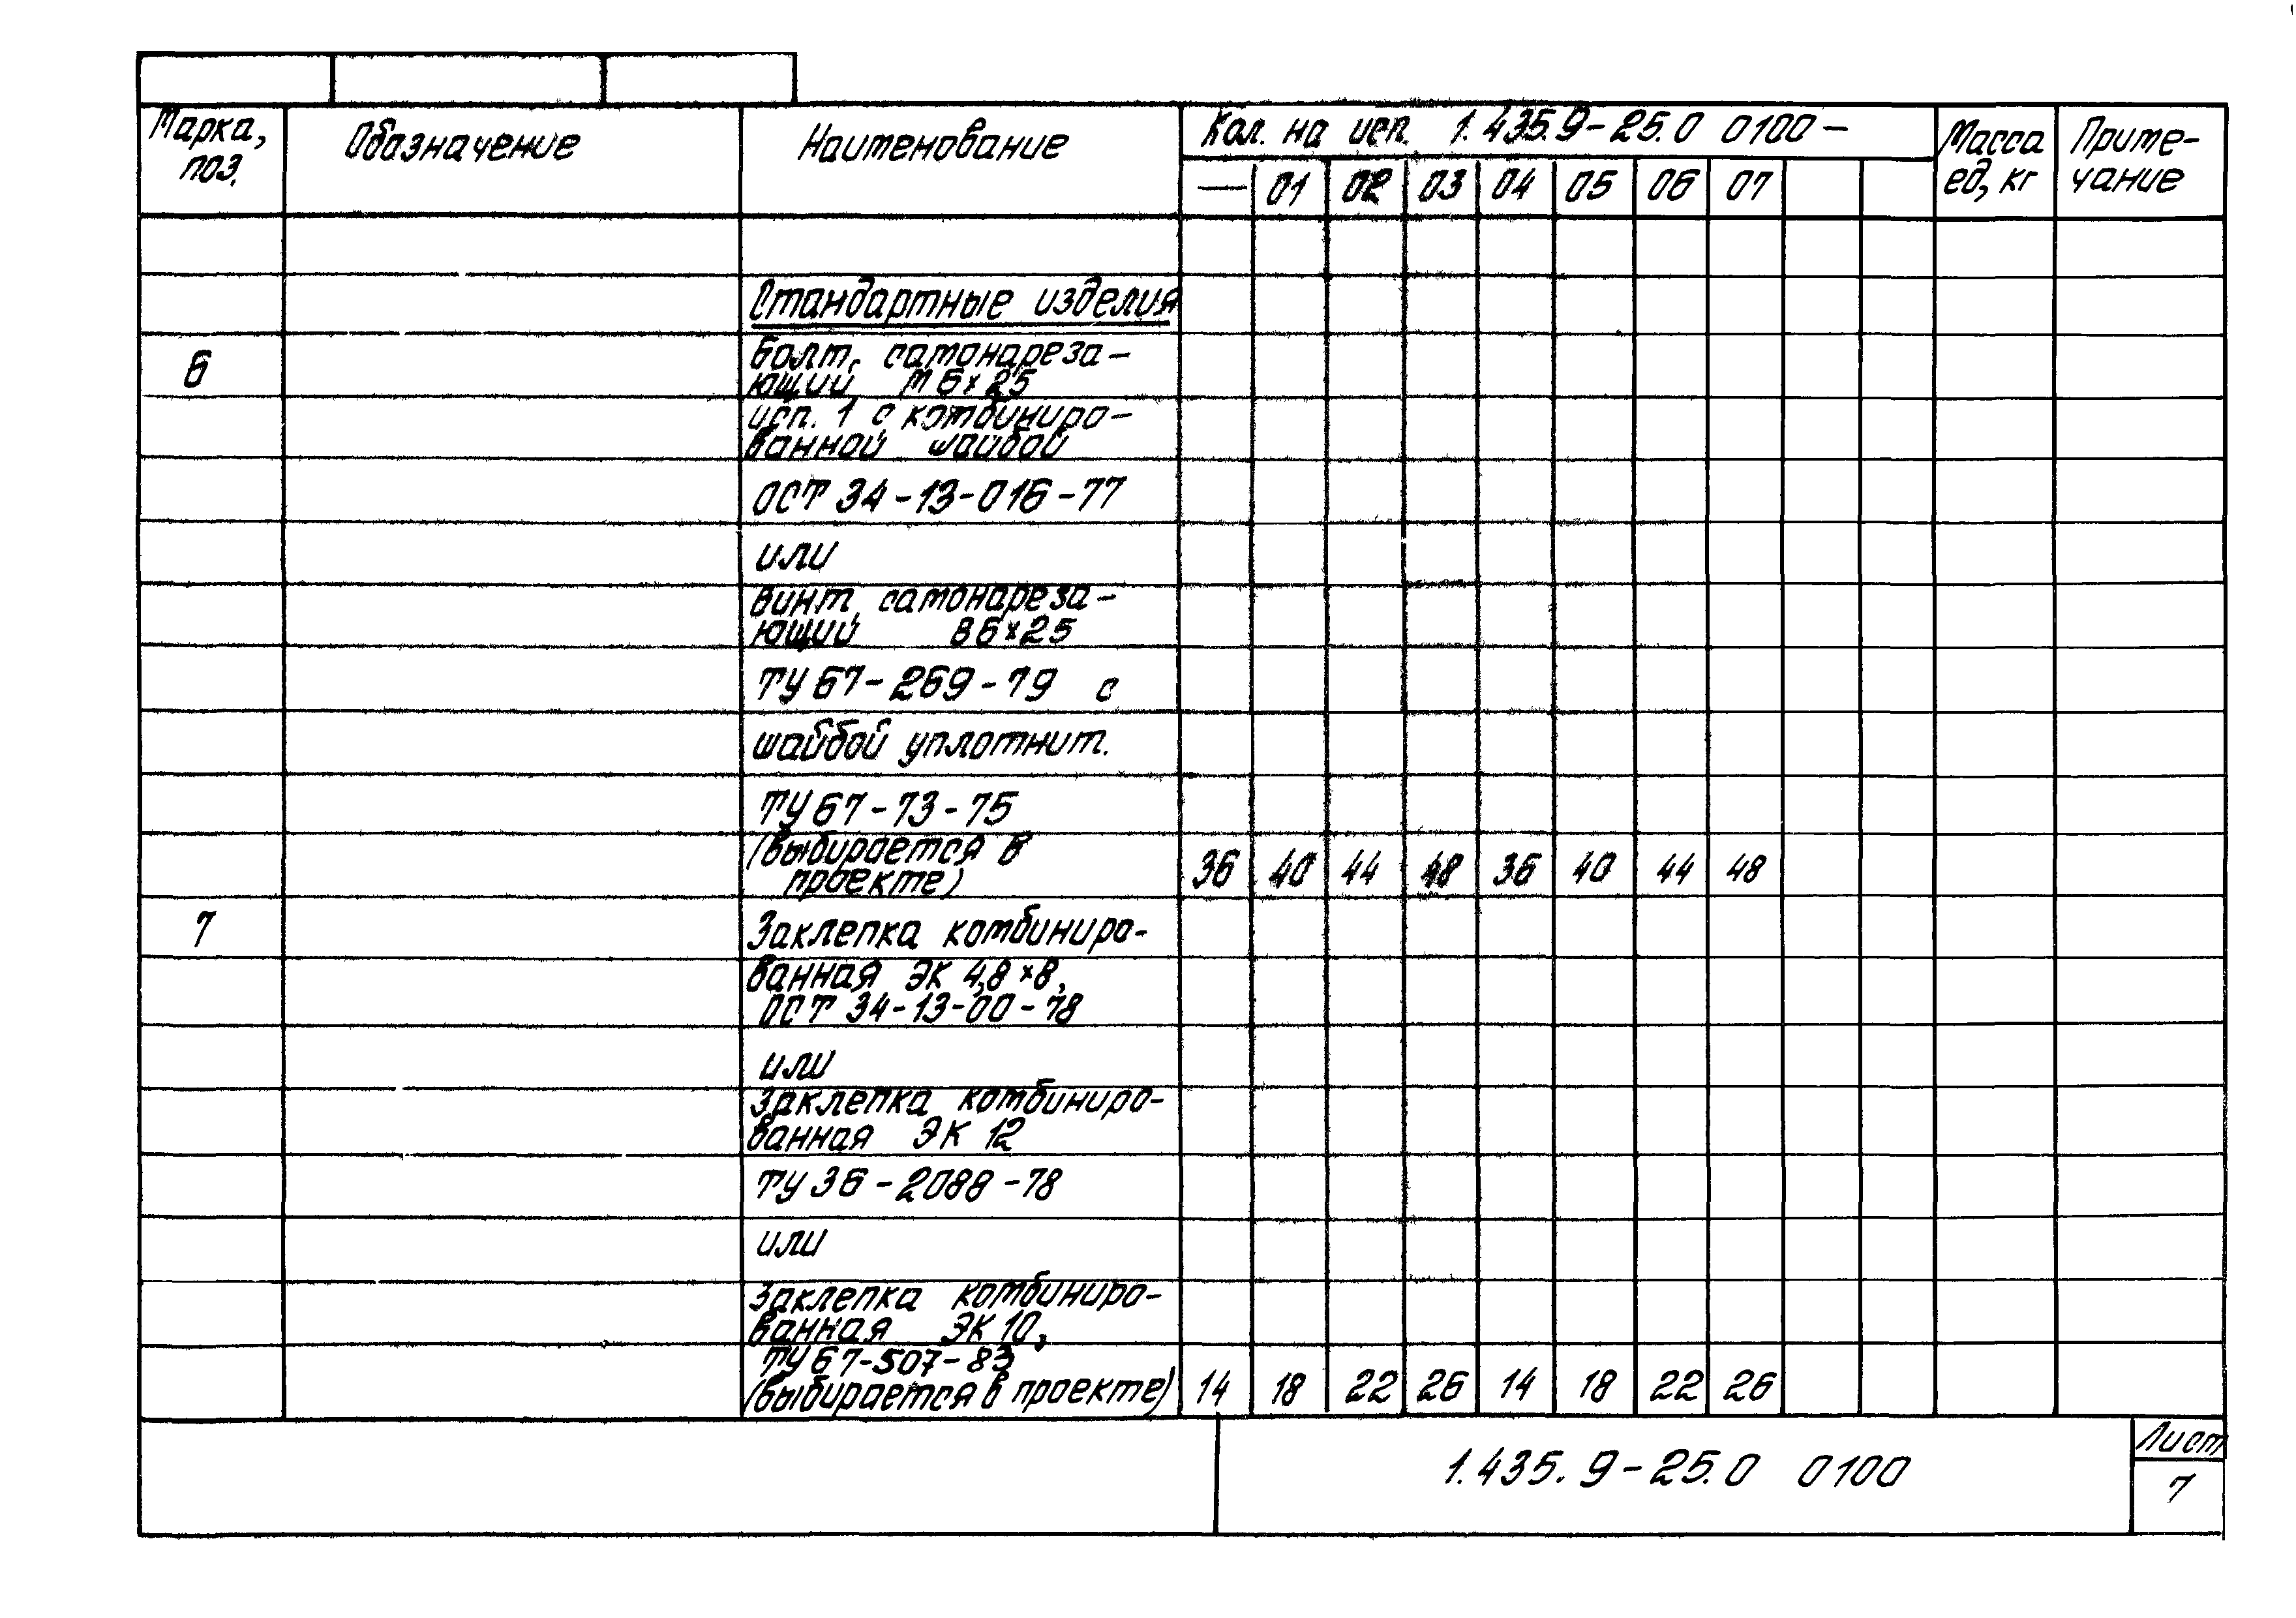 Марка, поз.
Обазначение
Наименование
Кол. на исп. 1.435.9-25.0 0100-
— 01 02 03 04 05 06 07
Масса ед, кг
Приме-
чание
Стандартные изделия
6
Болт самонареза-
ющий М6×25
исп. 1 с комбиниро-
ванной шайбой
ОСТ 34-13-016-77
или
винт самонареза-
ющий В6×25
ТУ 67-269-79 с
шайбой уплотнит.
ТУ 67-73-75
(выбирается в
проекте) 36 40 44 48 36 40 44 48
7
Заклепка комбиниро-
ванная ЭК 4,8×8,
ОСТ 34-13-00-78
или
Заклепка комбиниро-
ванная ЭК 12
ТУ 36-2088-78
или
Заклепка комбиниро-
ванная ЭК 10,
ТУ 67-507-83
(выбирается в проекте) 14 18 22 26 14 18 22 26
1.435.9-25.0 0100
Лист
7